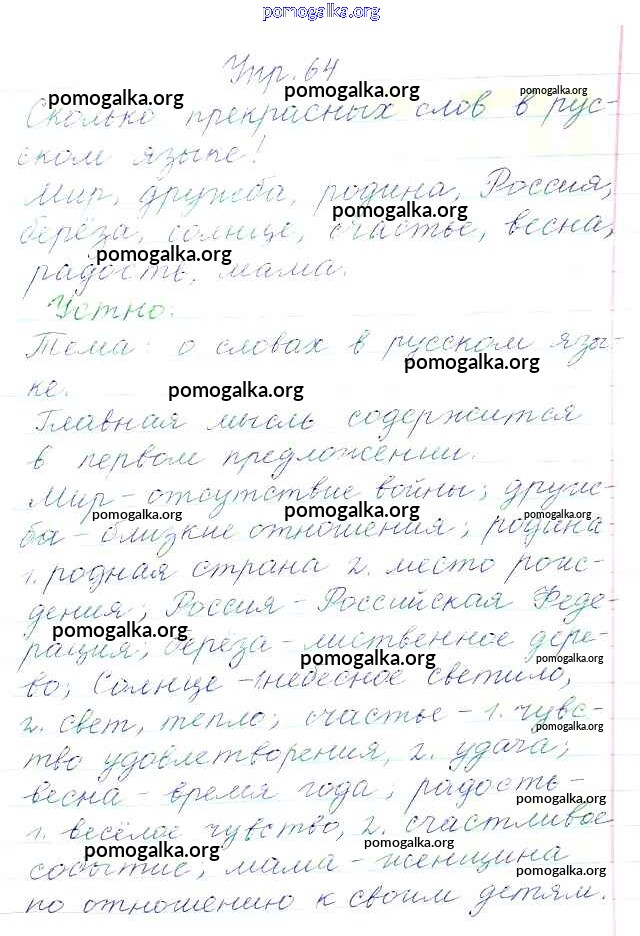 pomogalka.org
Упр. 64
pomogalka.org pomogalka.org pomogalka.org
Сколько прекрасных слов в рус-
ском языке!
Мир, дружба, родина, Россия,
pomogalka.org
берёза, солнце, счастье, весна,
pomogalka.org
радость, мама.
Устно:
Тема: о словах в русском язы-
pomogalka.org
ке.
pomogalka.org
Главная мысль содержится
в первом предложении.
Мир – отсутствие войны; друж-
pomogalka.org pomogalka.org pomogalka.org
ба – близкие отношения; родина
1. родная страна 2. место рож-
дения; Россия – Российская Феде-
pomogalka.org
рация; берёза – лиственное дере-
pomogalka.org pomogalka.org
во; Солнце – 1небесное светило,
2. свет, тепло; счастье – 1. чувс-
pomogalka.org
тво удовлетворения, 2. удача;
весна – время года; радость –
pomogalka.org
1. весёлое чувство, 2. счастливое
pomogalka.org pomogalka.org
событие; мама – женщина
pomogalka.org
по отношению к своим детям.